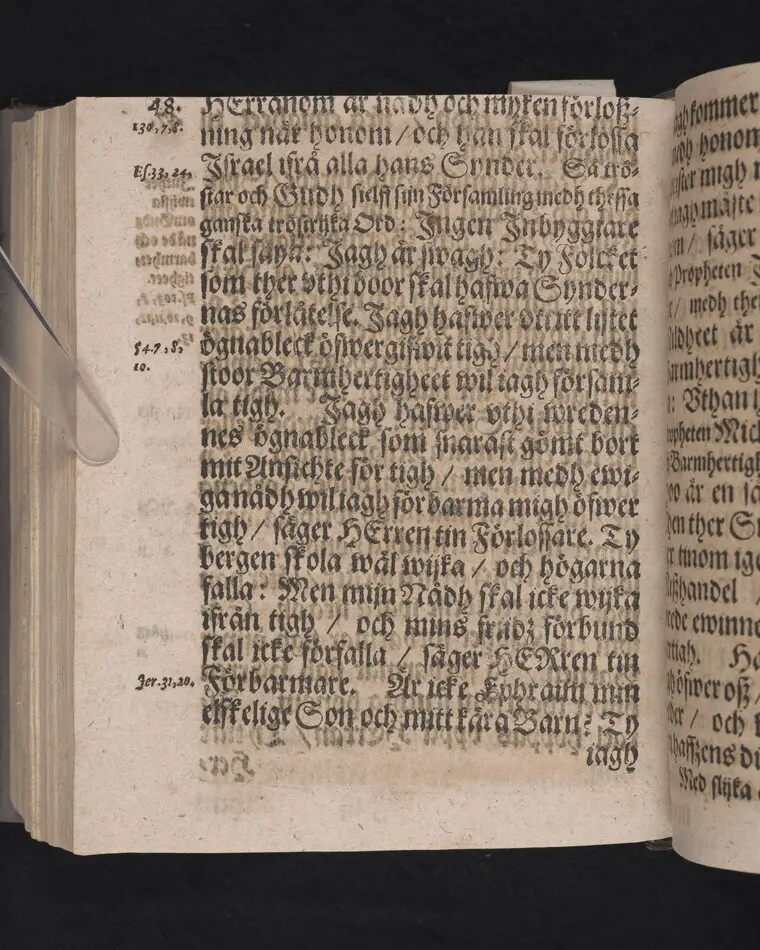 48.
HErranom är nådh och myken förloß-
130,7,8.
ning när honom / och han skal förlossa
Es.33,24.
Israel ifrå alla hans Synder. Så trö-
star och Gudh sielff sijn Församling medh thessa
ganska tröstrijka Ord: Ingen Inbyggiare
skal säya: Jagh är swagh: Ty Folcket
som ther vthi boor skal hafwa Synder-
nas förlåtelse. Jagh hafwer vti itt lijtet
54.7,8,
ögnableck öfwergifwit tigh / men medh
10.
stoor Barmhertigheet wil iagh försam-
la tigh. Jagh hafwer vthi wreden-
nes ögnableck som snarast gömt bort
mitt Ansichte för tigh / men medh ewi-
ga nådh wil iagh förbarma migh öfwer
tigh / säger HErren tin Förlossare. Ty
bergen skola wäl wijka / och högarna
falla: Men mijn Nådh skal icke wijka
ifrån tigh / och mins fridz förbund
skal icke förfalla / säger HERren tin
Jer.31,20.
Förbarmare. Är icke Ephraim min
elskelige Son och mitt kära Barn? Ty
iagh
kommer
honom
migh
måste
/ säger
Propheten
/ medh
är
: Vthan
Mich
är en
ther
/
ewinn
öfwer oß /
/ och
Med slijka